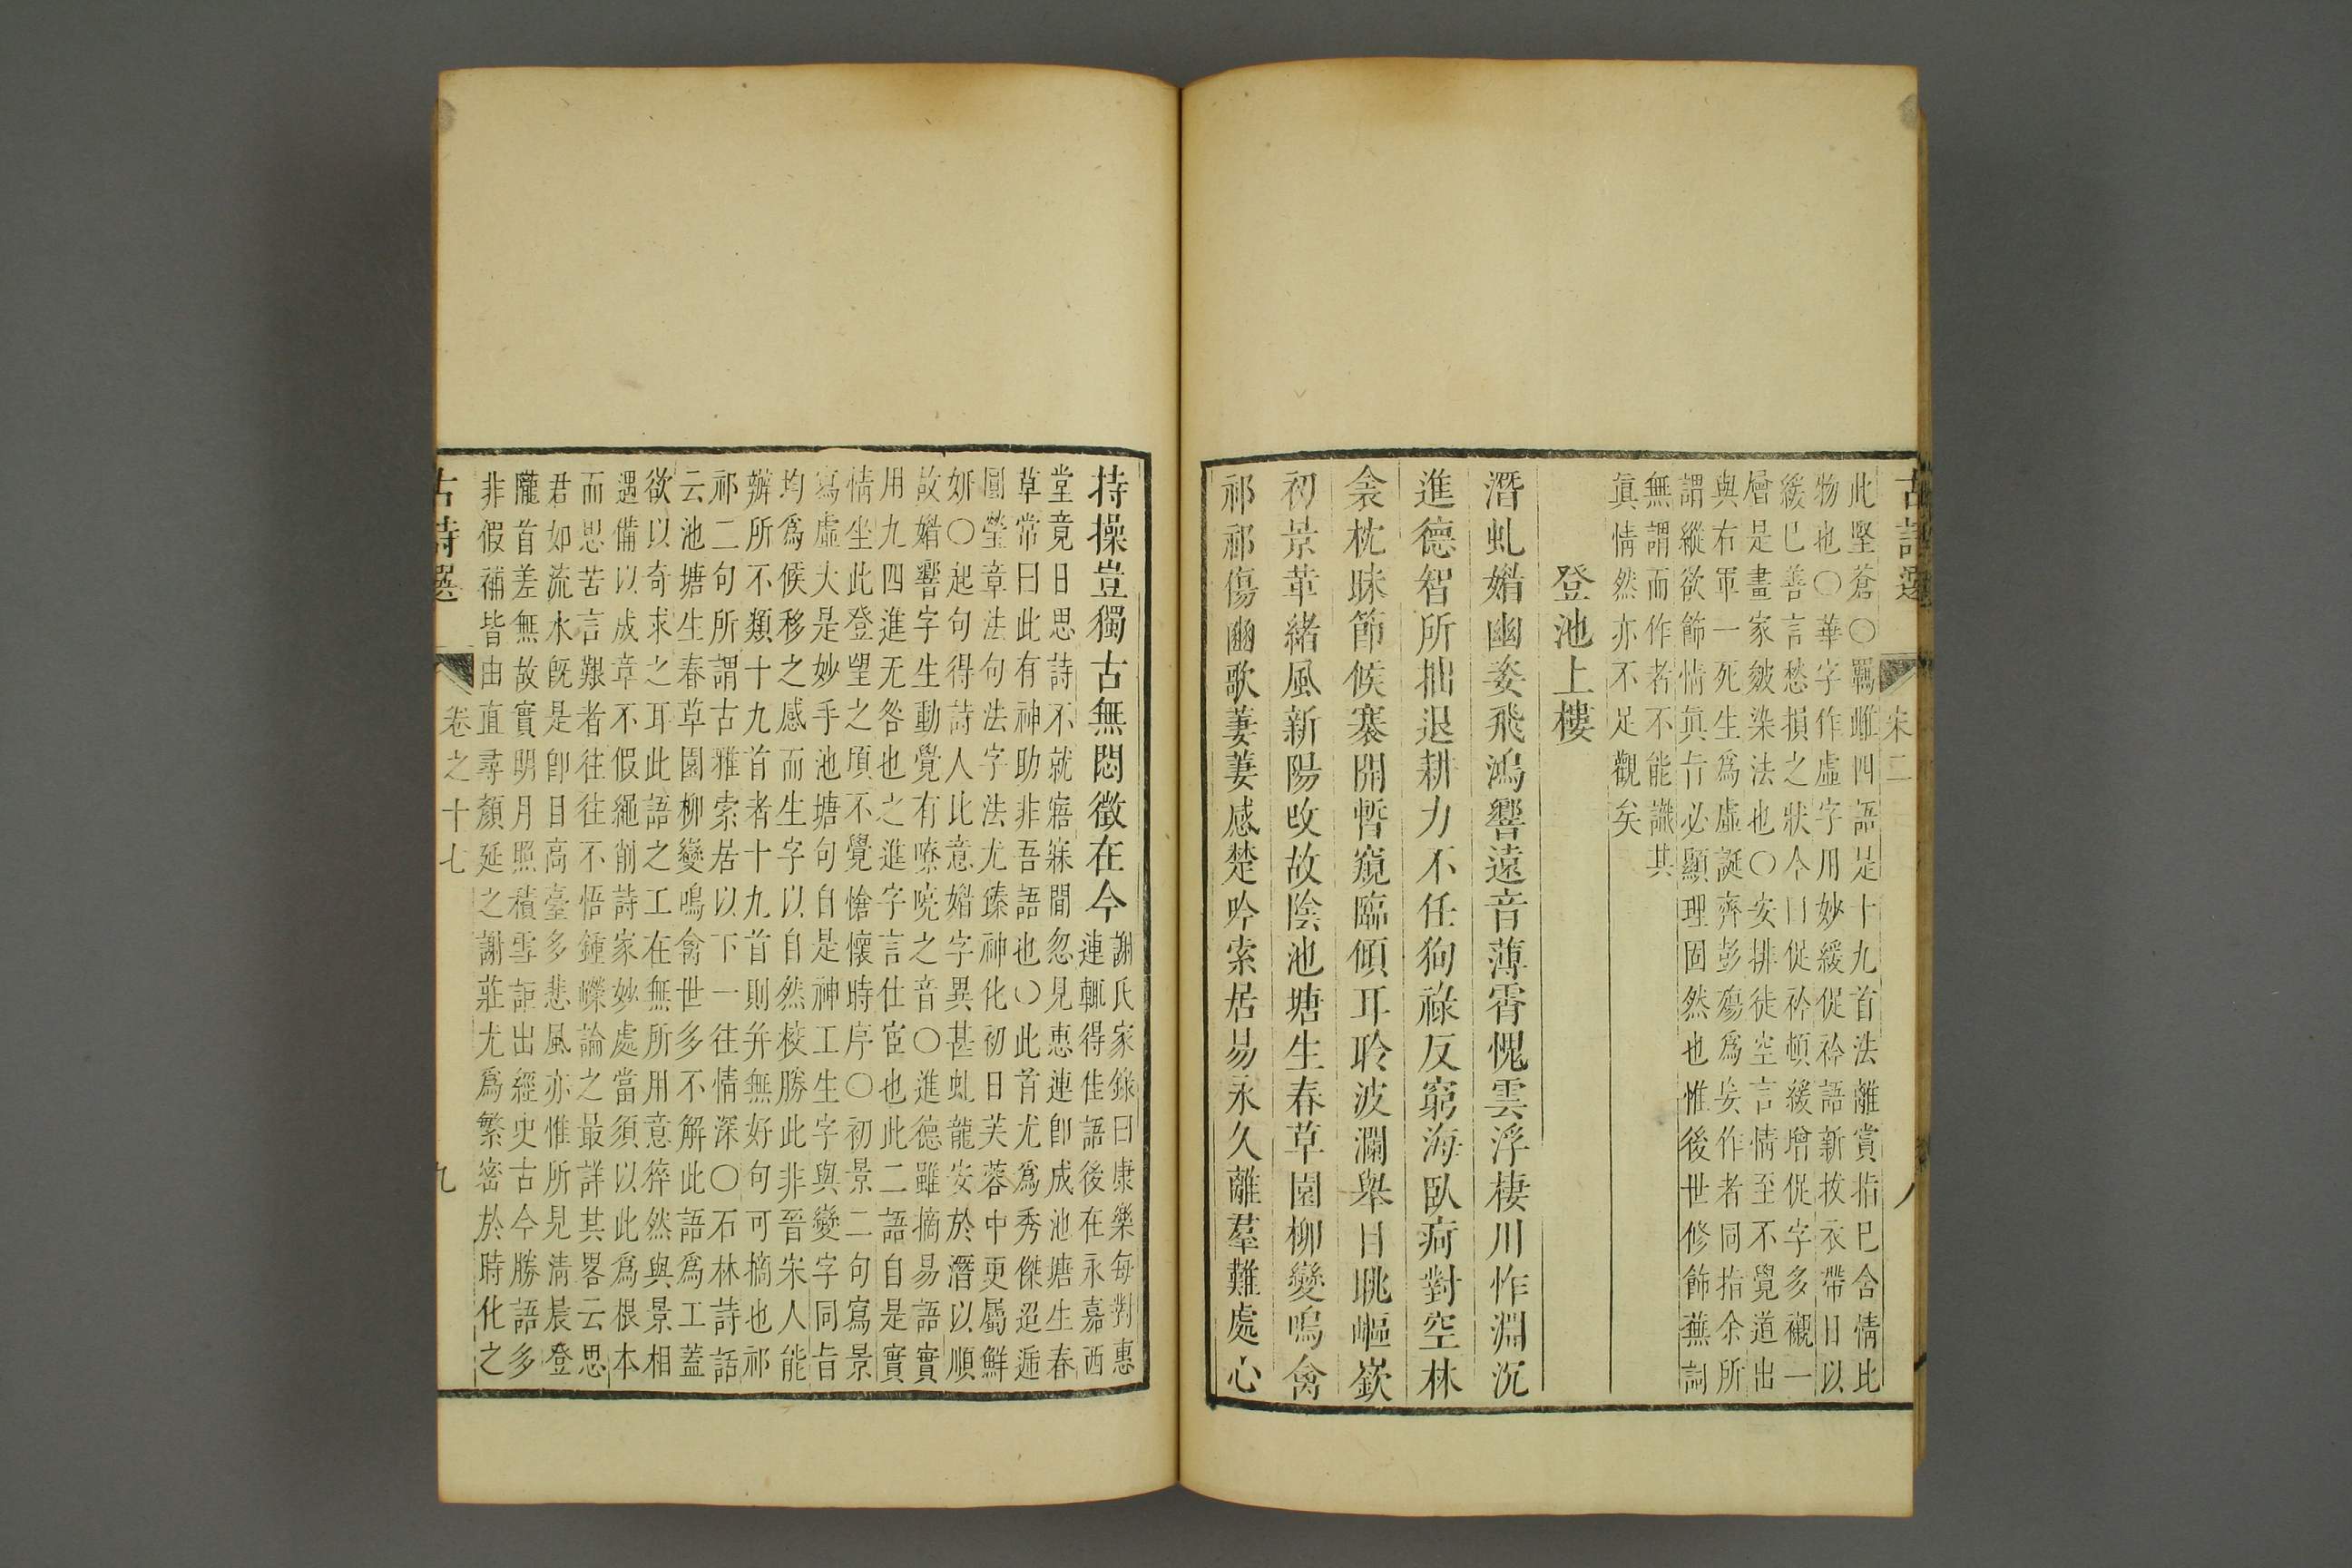 古詩選
宋二
八
此堅蒼〇羈雌四語是十九首法離賞指巳含情比
物也〇華字作虛字用妙緩促衿語新披衣帶日以
緩巳善言愁損之狀今曰促衿頓緩增促字多襯一
層是畫家皴染法也〇安排徒空言情至不覺道出
與右軍一死生爲虛誕齊彭殤爲妄作者同指余所
謂縱欲飾情眞旨必顯理固然也惟後世修飾蕪詞
無謂而作者不能識其
眞情然亦不足觀矣
登池上樓
潛虬媚幽姿飛鴻響遠音薄霄愧雲浮棲川怍淵沉
進德智所拙退耕力不任狥祿反窮海臥疴對空林
衾枕昧節候褰開暫窺臨傾耳聆波瀾舉目眺嶇嶔
初景革緒風新陽改故陰池塘生春草園柳變鳴禽
祁祁傷豳歌萋萋感楚吟索居易永久離羣難處心
持操豈獨古無悶徵在今
謝氏家錄曰康樂每對惠
連輒得佳語後在永嘉西
堂竟日思詩不就寤寐間忽見惠連卽成池塘生春
草常曰此有神助非吾語也〇此首尤爲秀傑迢遞
圓瑩章法句法字法尤臻神化初日芙蓉中更屬鮮
妍〇起句得詩人比意媚字異甚虬龍安於潛以順
故媚響字生動覺有嘹曉之音〇進德雖摘易語實
用九四進无咎也之進字言仕宦也此二語自是實
情坐此登望之頃不覺愴懷時序〇初景二句寫景
寫虛大是妙手池塘句自是神工生字與變字同旨
均爲候移之感而生字以自然校勝此非晉宋人能
辦所不類十九首者十九首則并無好句可摘也祁
祁二句所謂古雅索居以下一往情深〇石林詩話
云池塘生春草園柳變鳴禽世多不解此語爲工蓋
欲以奇求之耳此語之工在無所用意猝然與景相
遇備以成章不假繩削詩家妙處當須以此爲根本
而思苦言艱者往往不悟鍾嶸論之最詳其畧云思
君如流水旣是卽目高臺多悲風亦惟所見淸晨登
隴首差無故實明月照積雪詎出經史古今勝語多
非假補皆由直尋顏延之謝莊尤爲繁密於時化之
古詩選
卷之十七
九